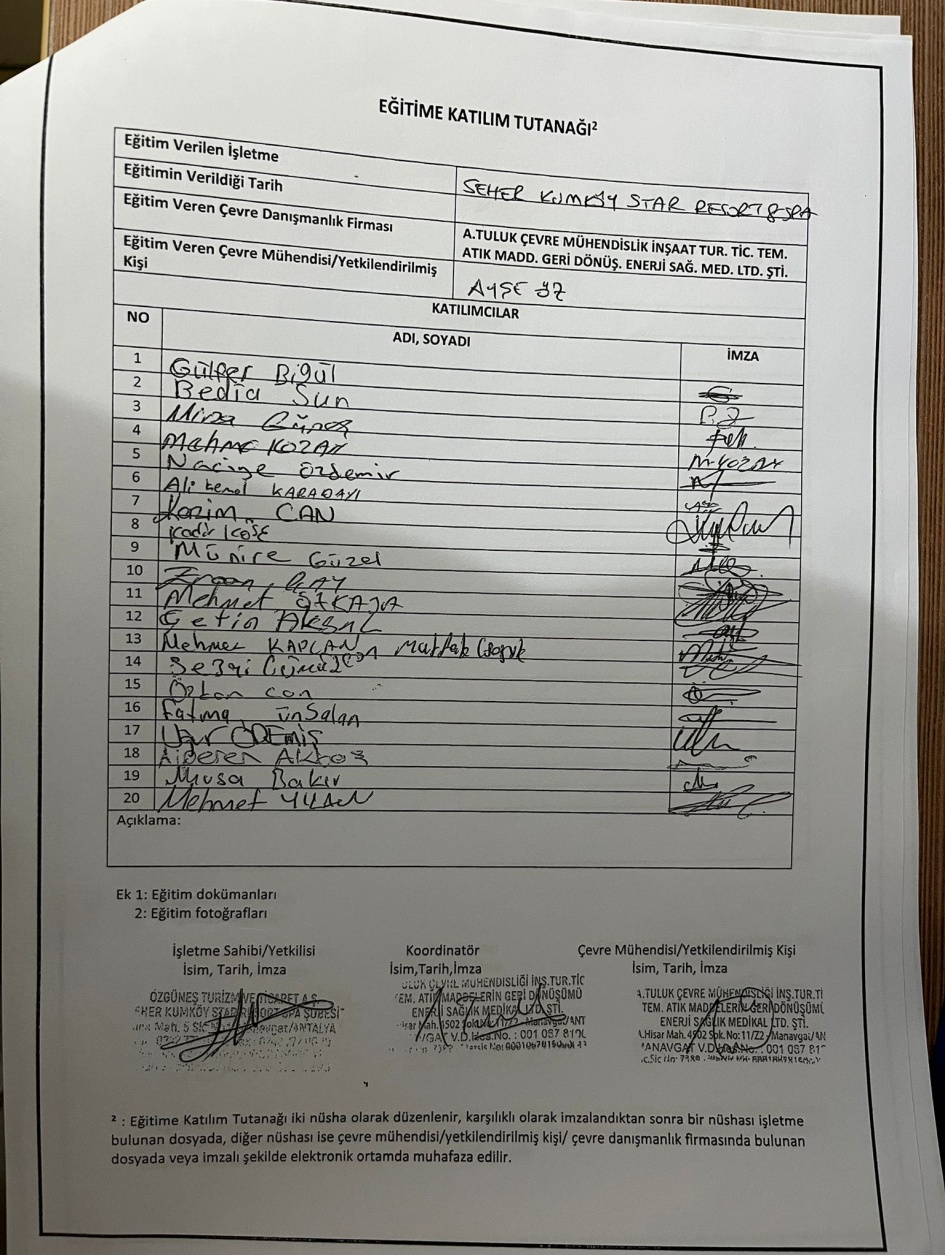 EĞİTİME KATILIM TUTANAĞI²
Eğitim Verilen İşletme
SEHER KUMKÖY STAR RESORT & SPA
Eğitimin Verildiği Tarih
Eğitim Veren Çevre Danışmanlık Firması
A.TULUK ÇEVRE MÜHENDİSLİK İNŞAAT TUR. TİC. TEM.
ATIK MADD. GERİ DÖNÜŞ. ENERJİ SAĞ. MED. LTD. ŞTİ.
Eğitim Veren Çevre Mühendisi/Yetkilendirilmiş
Kişi
AYŞE
KATILIMCILAR
NO
ADI, SOYADI
İMZA
1 Gülfer Bigül
2 Bedia Sun
3 Mirza Güneş
4 KOZAN
5 Naciye Özdemir
6 Ali Kemal KARADAYI
7 Kazim CAN
8 Kadir KÖSE
9 Münire Güzel
10
11 Mehmet
12 Çetin
13 Mehmet KAPLAN
14
15 Özkan Can
16 Fatma ünSalan
17 Uğur ÖDEMİŞ
18 Alperen
19 Musa Bakır
20 Mehmet
Açıklama:
Ek 1: Eğitim dokümanları
2: Eğitim fotoğrafları
İşletme Sahibi/Yetkilisi
İsim, Tarih, İmza
Koordinatör
İsim,Tarih,İmza
Çevre Mühendisi/Yetkilendirilmiş Kişi
İsim, Tarih, İmza
ÖZGÜNEŞ TURİZM VE TİCARET A.Ş.
KUMKÖY STAR RESORT SPA ŞUBESİ
Mah. 5 Manavgat/ANTALYA
MÜHENDİSLİĞİ İNŞ.TUR.TİC
TEM. ATIK MADDELERİN GERİ DÖNÜŞÜMÜ
ENERJİ SAĞLIK MEDİKAL LTD. ŞTİ.
Mah. 4502 Manavgat/ANT
A.TULUK ÇEVRE MÜHENDİSLİĞİ İNŞ.TUR.Tİ
TEM. ATIK MADDELERİN GERİ DÖNÜŞÜMÜ
ENERJİ SAĞLIK MEDİKAL LTD. ŞTİ.
Hisar Mah. 4502 Sok. No: 11/Z2 Manavgat/AN
MANAVGAT V.D. No. : 001 087 81
² : Eğitime Katılım Tutanağı iki nüsha olarak düzenlenir, karşılıklı olarak imzalandıktan sonra bir nüshası işletme
bulunan dosyada, diğer nüshası ise çevre mühendisi/yetkilendirilmiş kişi/ çevre danışmanlık firmasında bulunan
dosyada veya imzalı şekilde elektronik ortamda muhafaza edilir.